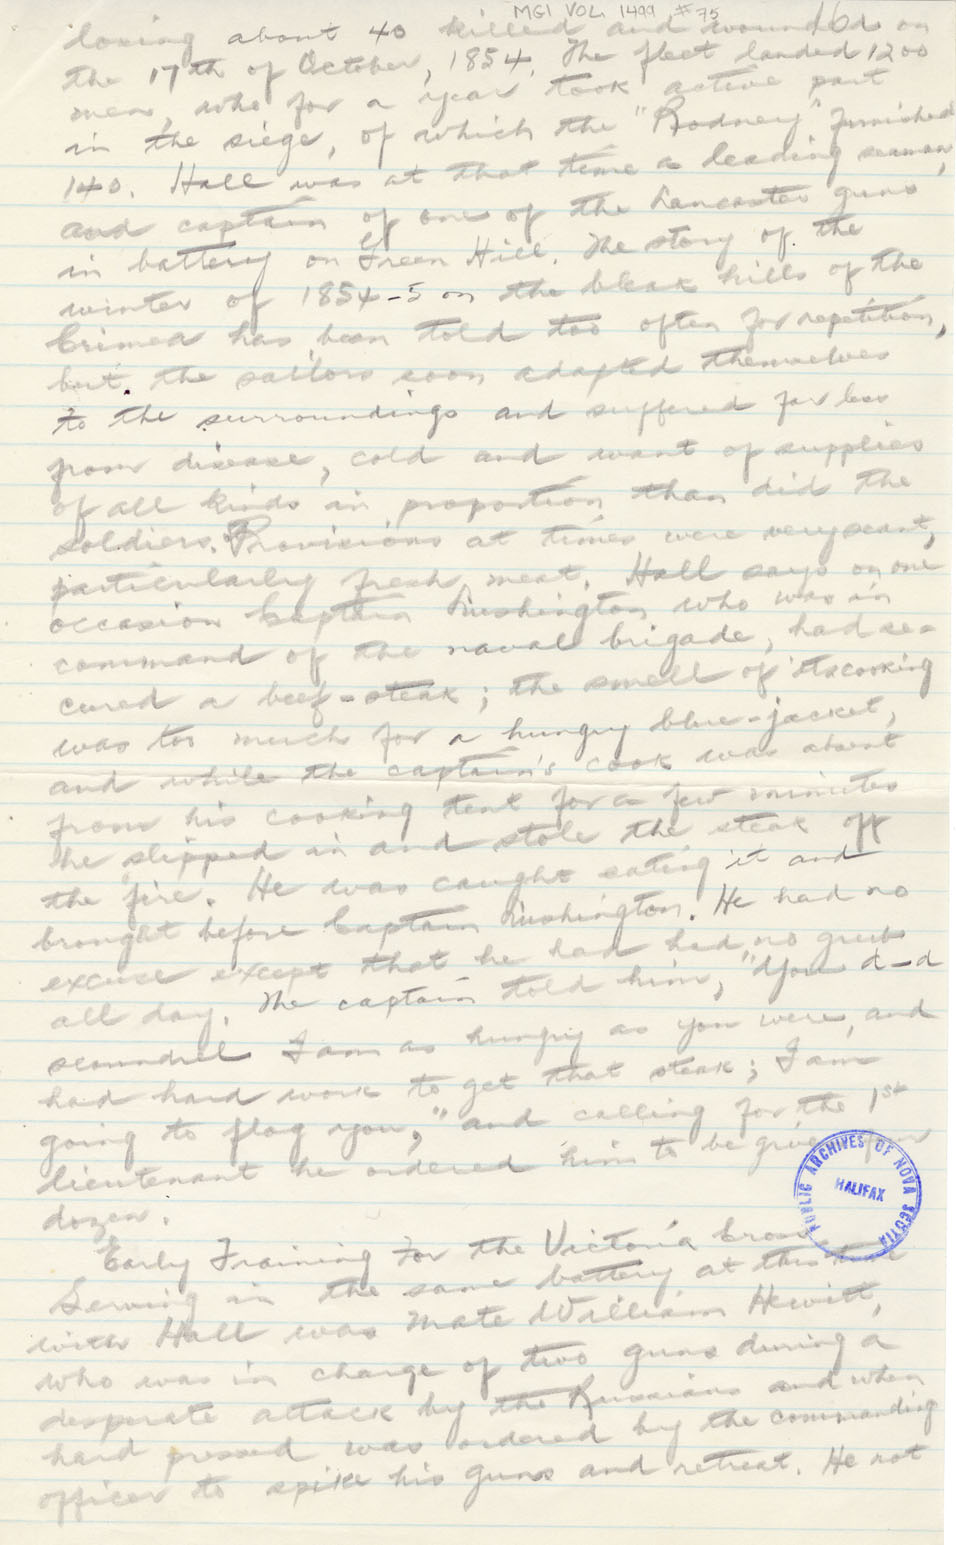 MG1 VOL. 1499 #75
16
losing about 40 killed and wounded on
the 17th of October, 1854. The fleet landed 1200
men, who for a year took active part
in the siege, of which the "Rodney" furnished
140. Hall was at that time a leading seaman,
and captain of one of the Lancaster guns
in battery on Green Hill. The story of the
winter of 1854-5 on the bleak hills of the
Crimea has been told too often for repetition,
but the sailors soon adapted themselves
to the surroundings and suffered far less
from disease, cold and want of supplies
of all kinds in proportion than did the
soldiers. Provisions at times were very scant,
particularly fresh meat. Hall says on one
occasion Captain Lushington who was in
command of the naval brigade, had se-
cured a beef-steak; the smell of its cooking
was too much for a hungry blue-jacket,
and while the captain's cook was absent
from his cooking tent for a few minutes
he slipped in and stole the steak off
the fire. He was caught eating it and
brought before Captain Lushington. He had no
excuse except that he had had no grub
all day. The captain told him, "You d-d
scoundrel I am as hungry as you were, and
had hard work to get that steak; I am
going to flog you," and calling for the 1st
lieutenant he ordered him to be given four
dozen.
PUBLIC ARCHIVES OF NOVA SCOTIA
HALIFAX
Early Training For the Victoria Cross
Serving in the same battery at this time
with Hall was Mate William Hewitt,
who was in charge of two guns during a
desperate attack by the Russians and when
hard pressed was ordered by the commanding
officer to spike his guns and retreat. He not